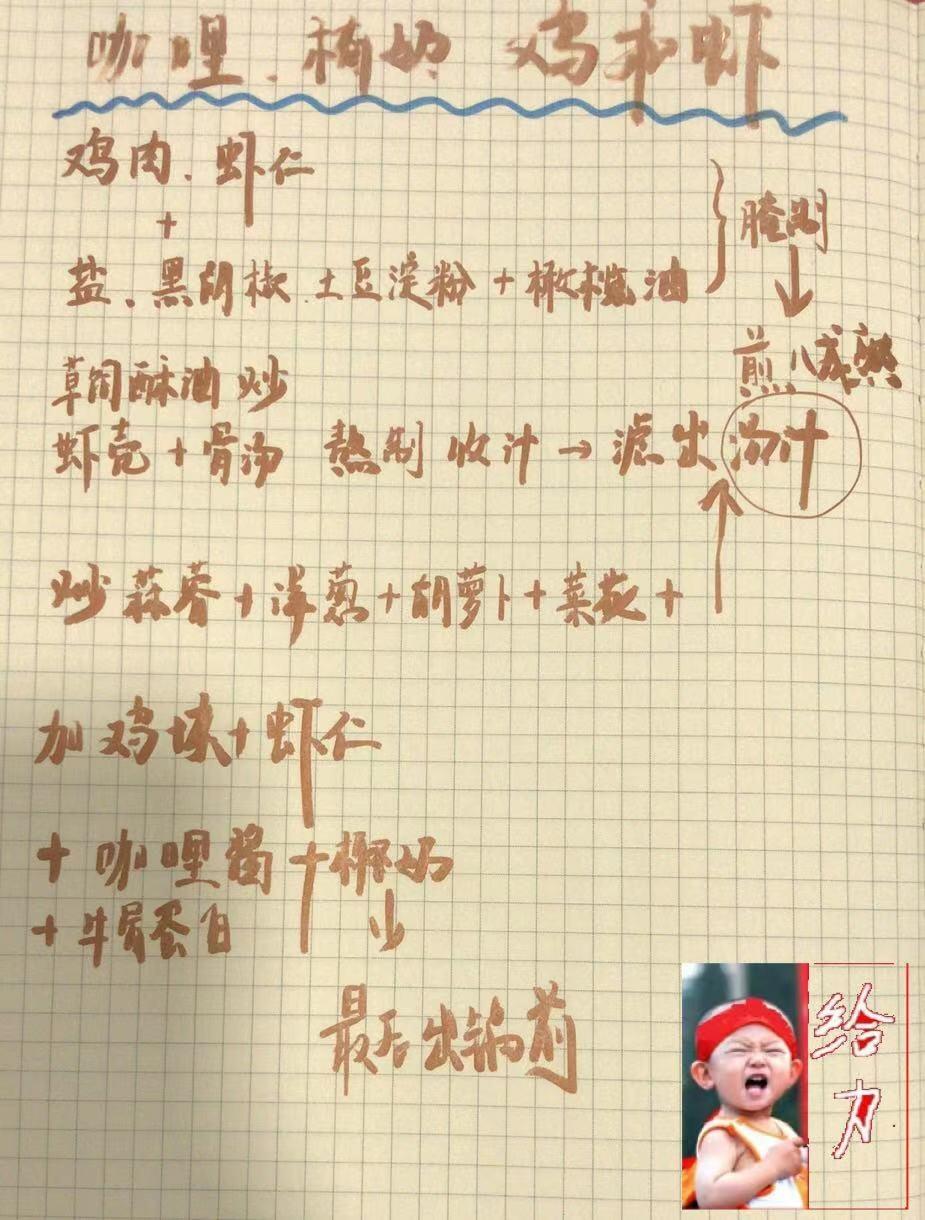 咖哩、椰奶 鸡和虾
鸡肉、虾仁
+
盐、黑胡椒、土豆淀粉 + 橄榄油
腌制
煎八成熟
草饲酥油炒
虾壳 + 骨汤 熬制 收汁 → 滤出汤汁
炒蒜蓉 + 洋葱 + 胡萝卜 + 菜花 +
加鸡块 + 虾仁
+ 咖哩酱 + 椰奶
+ 牛骨蛋白
最后出锅前
给力